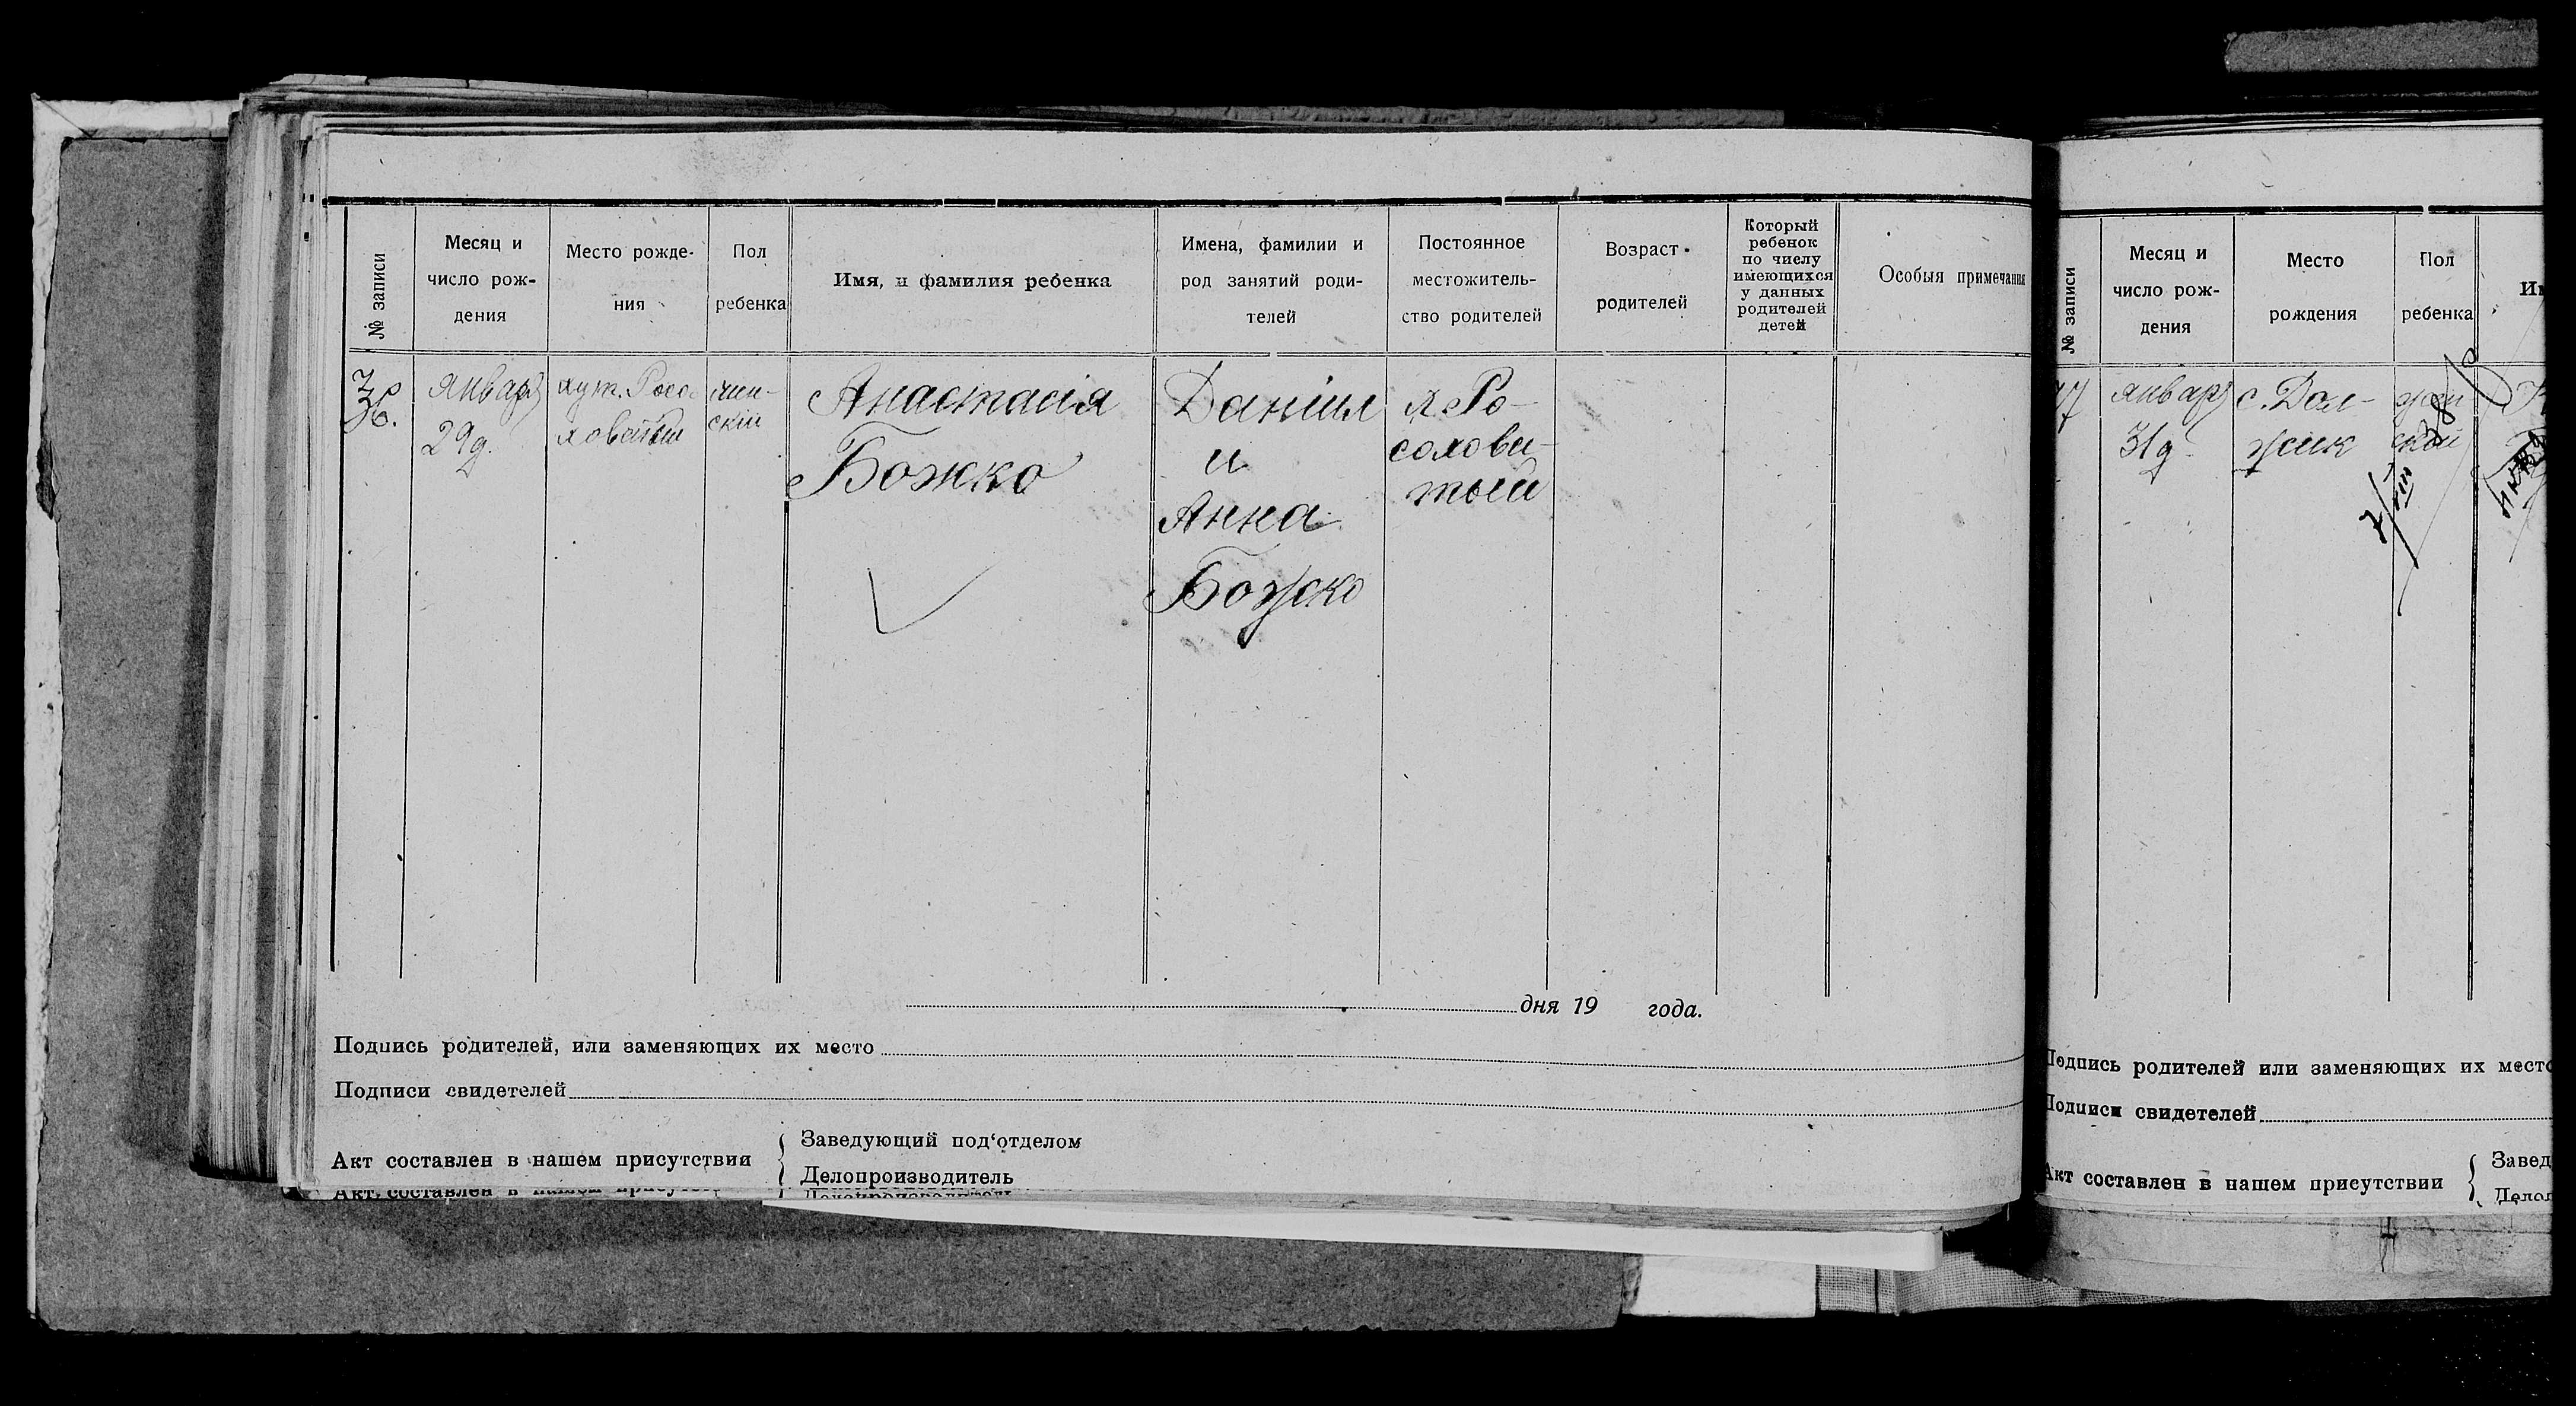 № записи
Месяц и
число рож-
дения
Место рожде-
ния
Пол
ребенка
Имя, и фамилия ребенка
Имена, фамилии и
род занятий роди-
телей
Постоянное
местожитель-
ство родителей
Возраст
родителей
Который
ребенок
по числу
имеющихся
у данных
родителей
детей
Особыя примечания
36.
январь
29д.
хут. Росо-
ловатый
жен-
скій
Анастасія
Божко
Даніил
и
Анна
Божко
х. Ро-
солова-
тый
дня 19 года.
Подпись родителей, или заменяющих их место
Подписи свидетелей
Акт составлен в нашем присутствии
Заведующий под‘отделом
Делопроизводитель
№ записи
Месяц и
число рож-
дения
Место
рождения
Пол
ребенка
январь
31д.
с. Дол-
жик
жен
ский
7/VIII
38
Подпись родителей или заменяющих их место
Подписи свидетелей
Акт составлен в нашем присутствии
Завед
Делоп